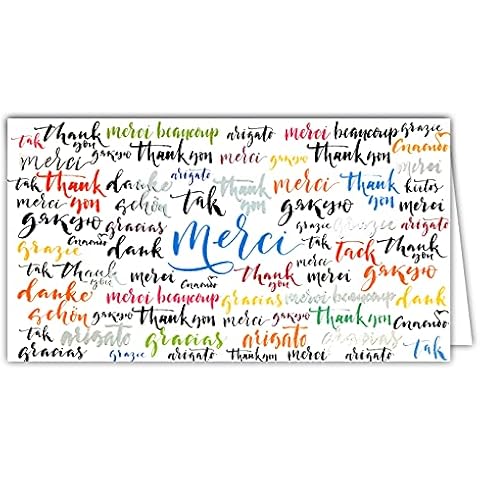 thank you merci beaucoup arigato merci beaucoup grazie
merci gракую thank you merci gracias thank you merci
tak thank you danke schön arigato tak thank you merci thank you kiitos
дякую gracias tak дякую gracias grazie arigato
grazie Спасибо dank merci tak Tack thank you
tak thank you merci gracias thank you merci дякую
danke schön merci beaucoup gracias merci beaucoup danke schön
tak дякую thank you merci gracias thank you Спасибо
gracias arigato gracias arigato gracias tak
grazie arigato thank you merci arigato